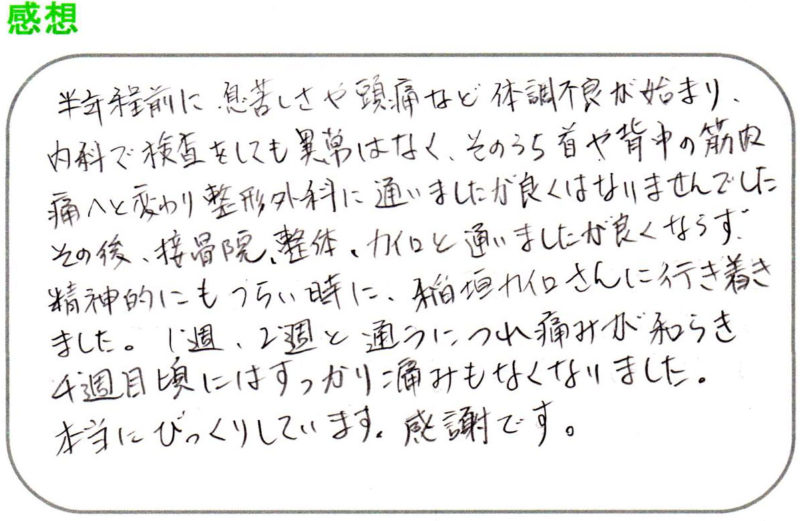 感想
半年程前に息苦しさや頭痛など体調不良が始まり、
内科で検査をしても異常はなく、そのうち首や背中の筋肉
痛へと変わり整形外科に通いましたが良くはなりませんでした
その後、接骨院、整体、カイロと通いましたが良くならず、
精神的にもつらい時に、稲垣カイロさんに行き着き
ました。1週、2週と通うにつれ痛みが和らぎ
4週目頃にはすっかり痛みもなくなりました。
本当にびっくりしています。感謝です。